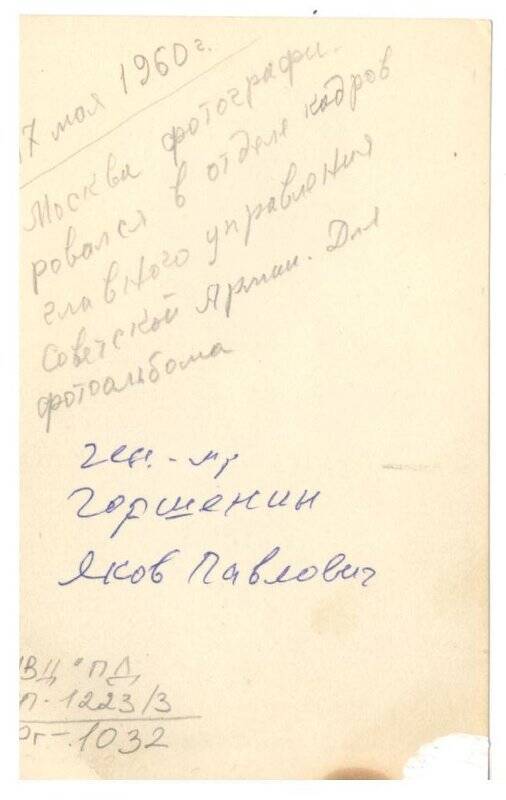 17 мая 1960 г.
Москва фотографи-
ровался в отделе кадров
главного управления
Советской Армии. Для
фотоальбома
ген.-м-р
Горшенин
Яков Павлович
ВЦ "ПД
П-1223/3
ог-1032